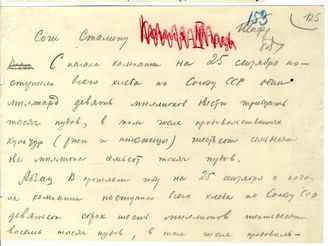 Сочи Сталину
159
125
Шифр
С начала компании на 25 сентября по-
ступило всего хлеба по Союзу ССР один
миллиард девять миллионов двести тридцать
тысяч пудов, в том числе продовольственных
культур (ржи и пшеницы) шестьсот семьдесят
два миллиона семьсот тысяч пудов.
Абзац В прошлом году на 25 сентября с нача-
ла компании поступило всего хлеба по Союзу ССР
девятсот сорок шесть миллионов шестьдесят
восемь тысяч пудов, в том числе продоволь-